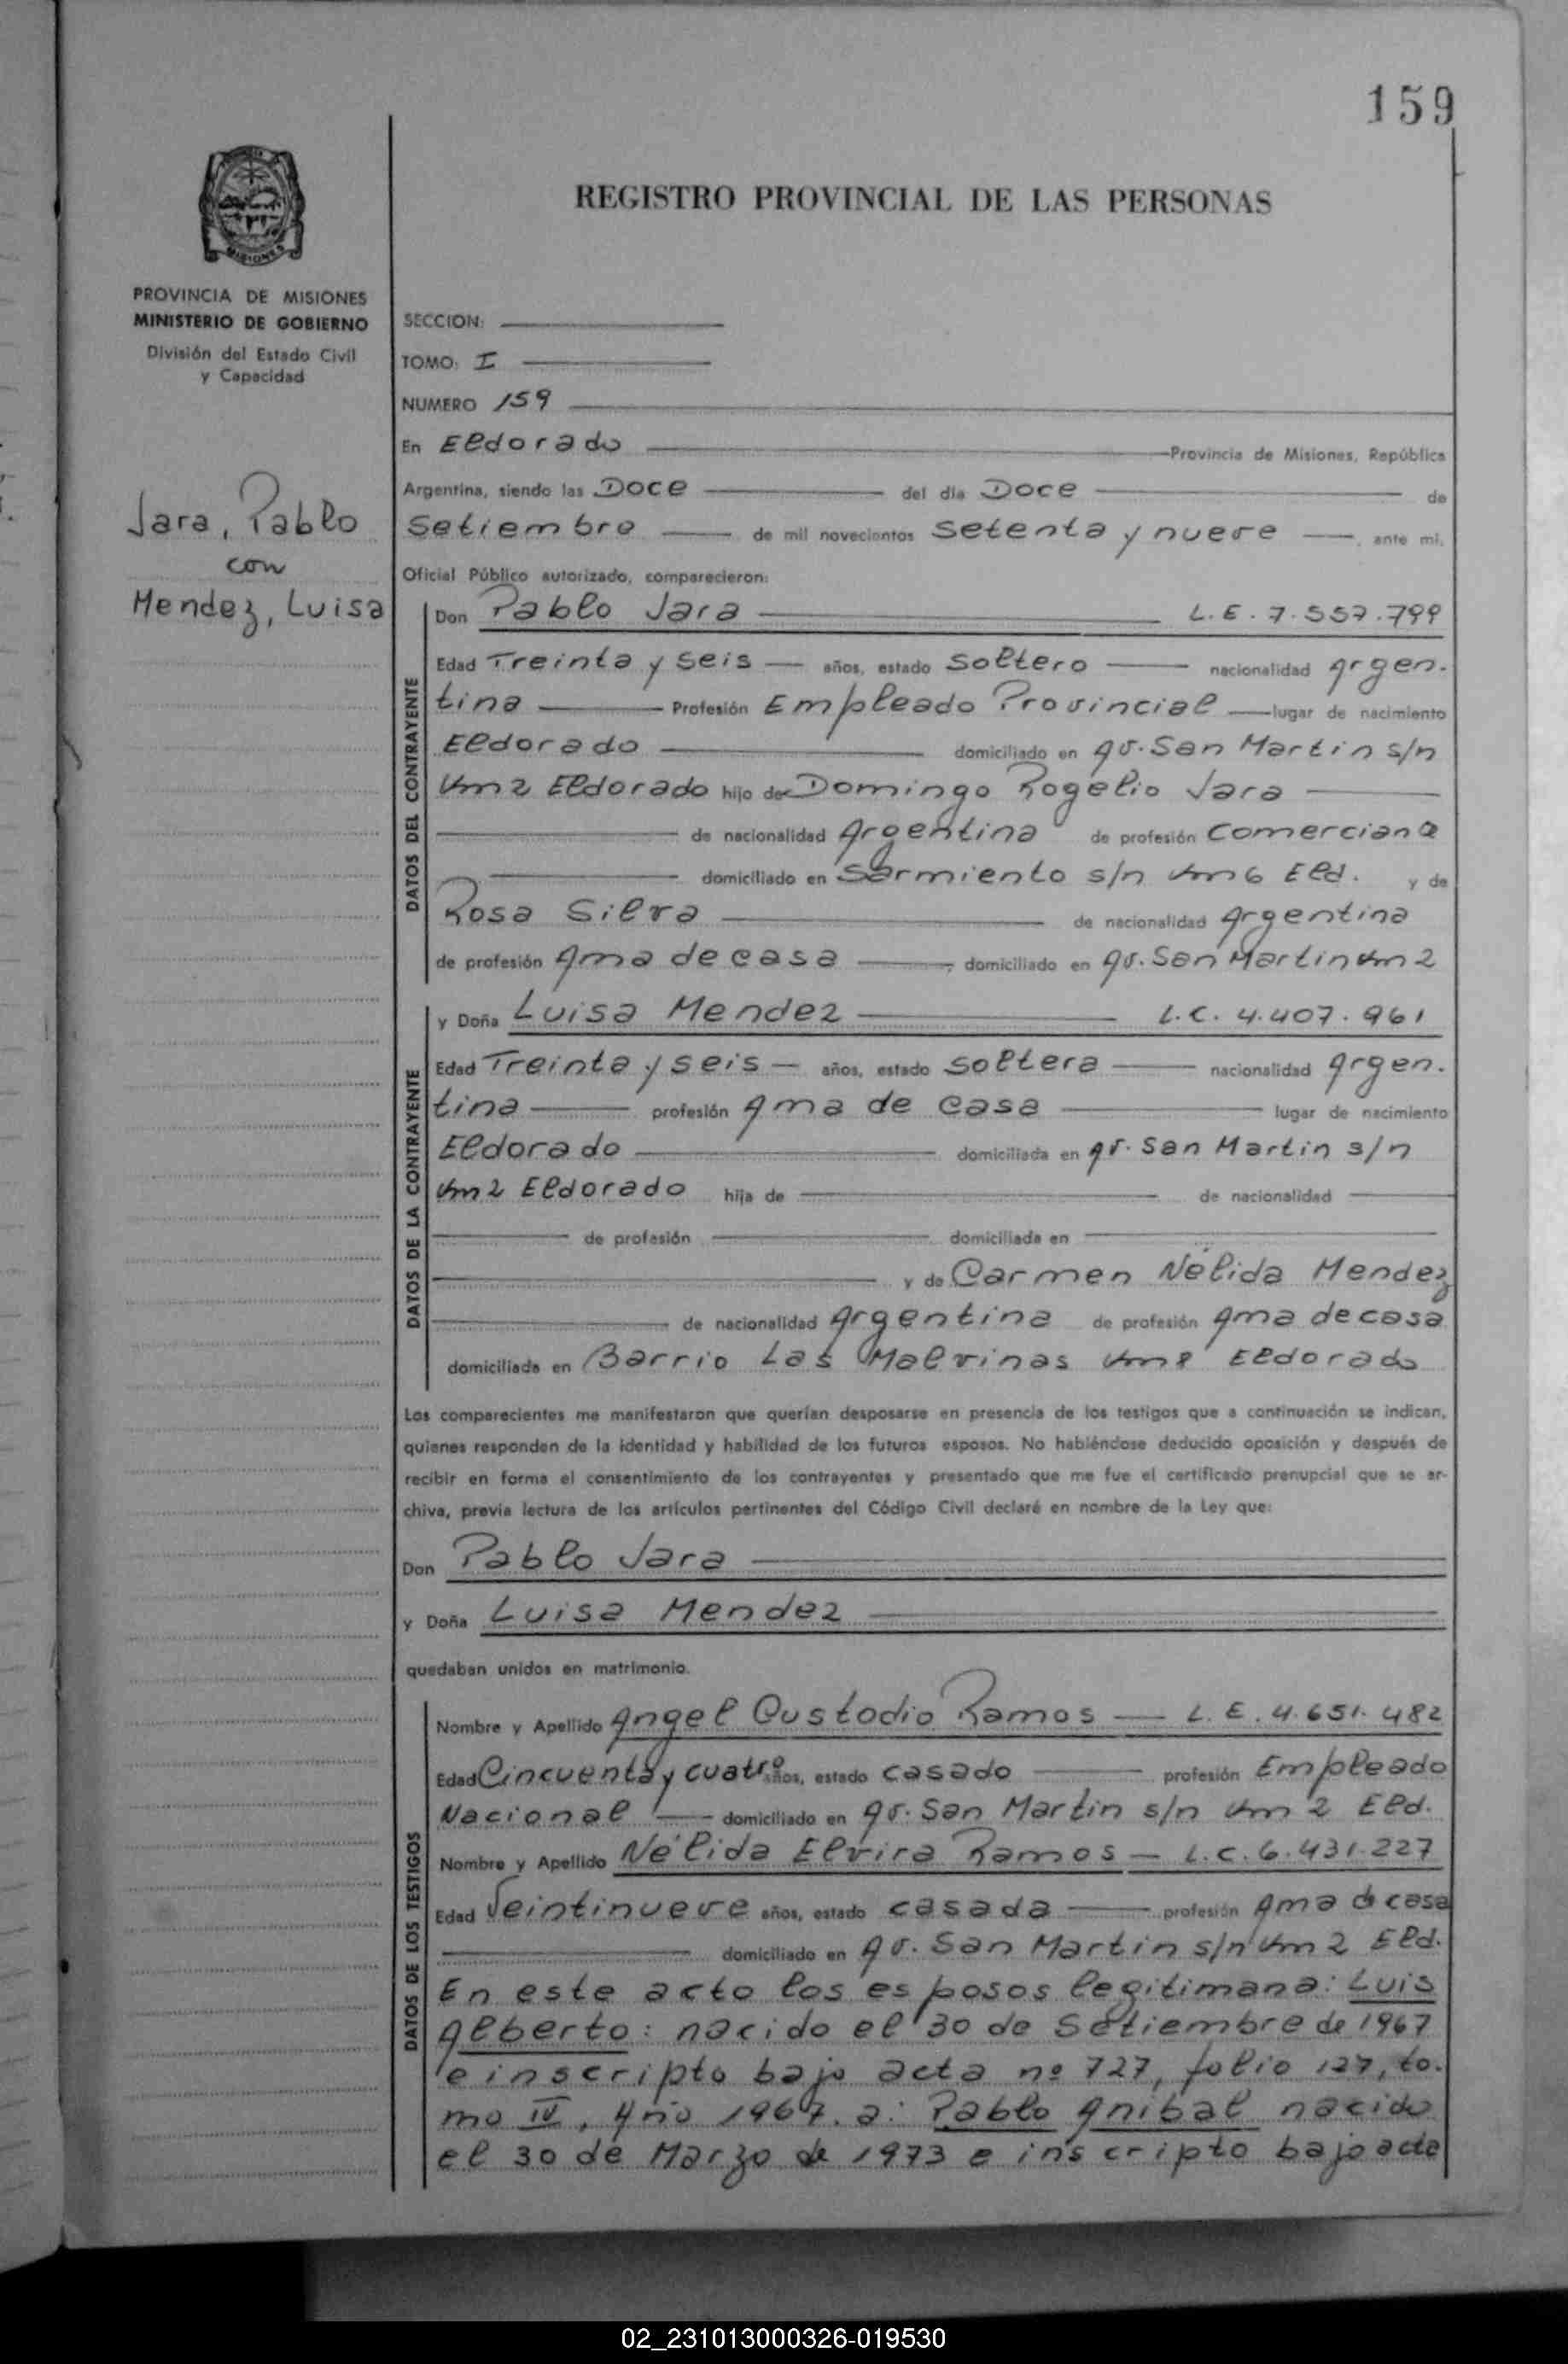 159
REGISTRO PROVINCIAL DE LAS PERSONAS
MISIONES
PROVINCIA DE MISIONES
MINISTERIO DE GOBIERNO
División del Estado Civil
y Capacidad
Jara, Pablo
con
Mendez, Luisa
SECCION:
TOMO: I
NUMERO 159
En Eldorado Provincia de Misiones, República
Argentina, siendo las Doce del día Doce de
Setiembre de mil novecientos Setenta y nueve, ante mi,
Oficial Público autorizado, comparecieron:
DATOS DEL CONTRAYENTE
Don Pablo Jara L.E. 7.557.799
Edad Treinta y seis años, estado Soltero nacionalidad Argen-
tina Profesión Empleado Provincial lugar de nacimiento
Eldorado domiciliado en Av. San Martin s/n
Km 2 Eldorado hijo de Domingo Rogelio Jara
de nacionalidad Argentina de profesión Comerciana
domiciliado en Sarmiento s/n Km 6 Eld. y de
Rosa Silva de nacionalidad Argentina
de profesión Ama de casa, domiciliado en Av. San Martin Km 2
DATOS DE LA CONTRAYENTE
y Doña Luisa Mendez L.C. 4.407.961
Edad Treinta y seis años, estado Soltera nacionalidad Argen-
tina profesión Ama de casa lugar de nacimiento
Eldorado domiciliada en Av. San Martin s/n
Km 2 Eldorado hija de de nacionalidad
de profesión domiciliada en
y de Carmen Nélida Mendez
de nacionalidad Argentina de profesión Ama de casa
domiciliada en Barrio Las Malvinas Km 8 Eldorado
Los comparecientes me manifestaron que querían desposarse en presencia de los testigos que a continuación se indican,
quienes responden de la identidad y habilidad de los futuros esposos. No habiéndose deducido oposición y después de
recibir en forma el consentimiento de los contrayentes y presentado que me fue el certificado prenupcial que se ar-
chiva, previa lectura de los artículos pertinentes del Código Civil declaré en nombre de la Ley que:
Don Pablo Jara
y Doña Luisa Mendez
quedaban unidos en matrimonio.
DATOS DE LOS TESTIGOS
Nombre y Apellido Angel Custodio Ramos L.E. 4.651.482
Edad Cincuenta y cuatro años, estado casado profesión Empleado
Nacional domiciliado en Av. San Martin s/n Km 2 Eld.
Nombre y Apellido Nélida Elvira Ramos L.C. 6.431.227
Edad Veintinueve años, estado casada profesión Ama de casa
domiciliado en Av. San Martin s/n Km 2 Eld.
En este acto los esposos legitiman a: Luis
Alberto: nacido el 30 de Setiembre de 1967
e inscripto bajo acta nº 727, folio 127, to-
mo IV, Año 1967. a: Pablo Anibal nacido
el 30 de Marzo de 1973 e inscripto bajo acta
02_231013000326-019530